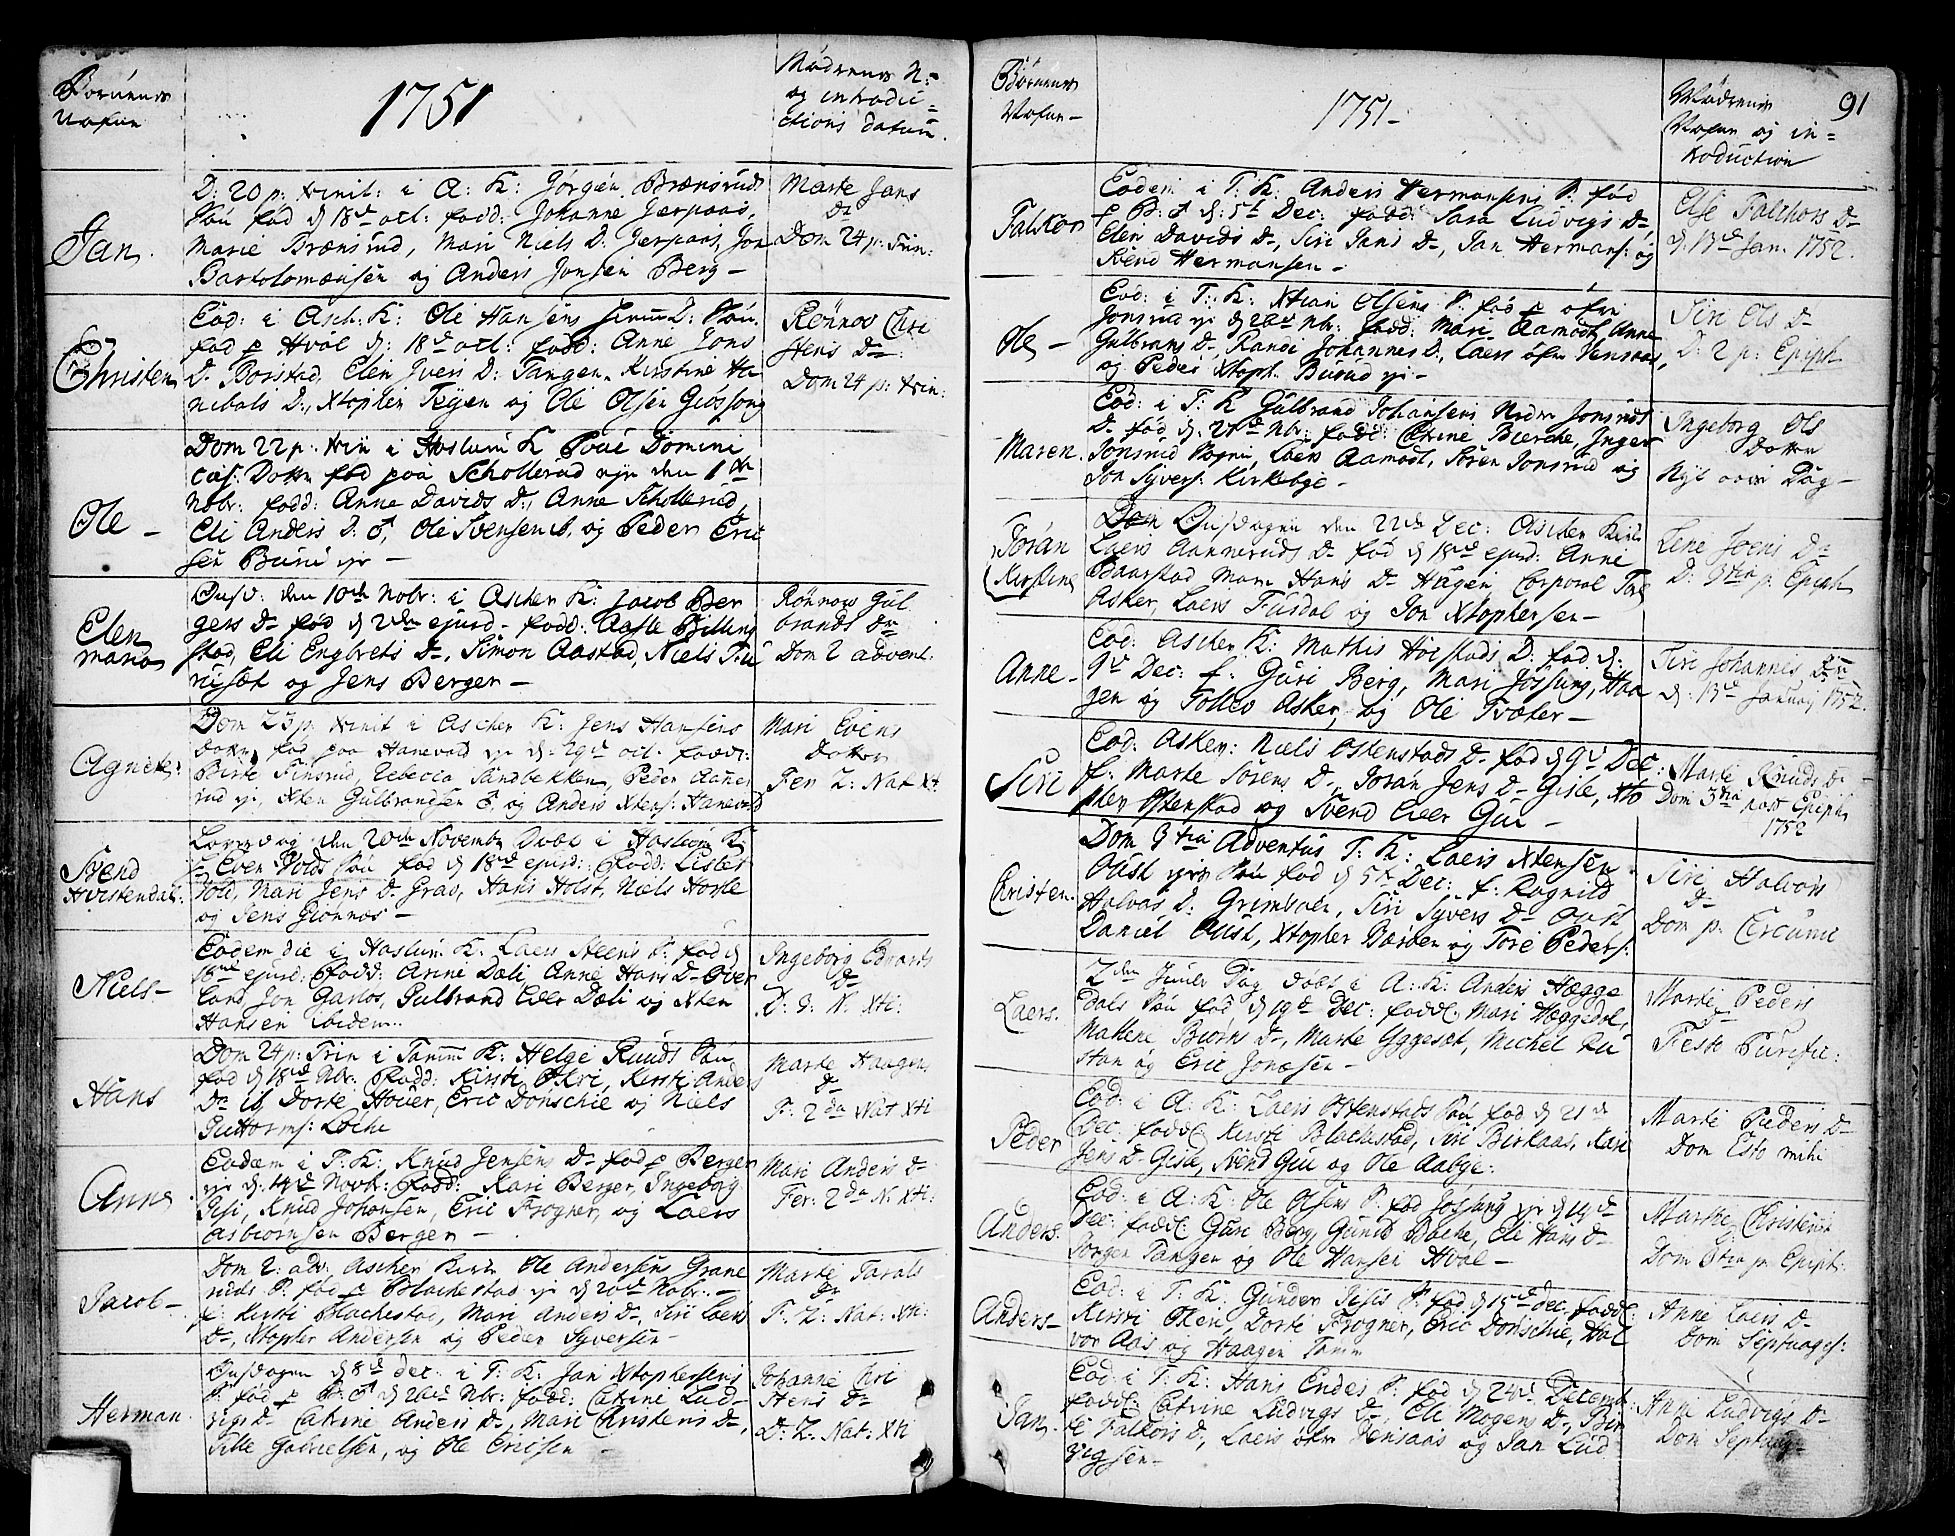 Børnenes
Nafne
1751
Mødrenes N:
og introdu=
ctions datum.
Jan.
D: 20 p: trinit: i A: K: Jørgen Brænsruds
Søn fød d 18de oct: fadd: Johanne Jerpaas,
Marie Brænsrud, Mari Niels D. Jerpaas, Jon
Bartolomæusen og Anders Jonsen Berg –
Marte Jans
Dr
Dom 24 p: Trin:
Christen
Eod: i Asch: K: Ole Hansens Søn
fød p Hval d: 18de oct: fadd: Anne Jons
D. Borstad, Elen Ivers D: Tangen, Kirstine Ha
nibals D., Xtopher Tejen og Ole Olsen Giøssong
Rønnov Chri
stens Dr
Dom 24 p: trin:
Ole –
Dom 22 p: trin i Haslum K Povel Domini
cus: Dotter fød paa Schollerud den 1ste
Nobr: fadd: Anne Davids D., Anne Schollerud,
Eli Anders D: Ole Svensen ib. og Peder Eric
sen Burud ejr –
Elen
maria
Onsd: den 10de Nobr: i Ascher K: Jacob Ber
gers Dr fød d 2den ejusd – fadd: Aasle Billing
stad, Eli Engbrets Dr, Simon Aastad, Niels Tru
og Jens Berger –
Rønnov Gul
brands Dr
Dom 2 advent.
Agnete:
Dom 23 p: trinit i Ascher K: Jens Hansens
dotter fød paa Hanevold ejr d: 29de oct: fadd:
Birte Finsrud, Rebecca Sandbekken, Peder Aanne
rud ejr, Xten Gulbrandsen og Anders Xtens: Hanevold
Mari Evens
Dotter
Fer 2: Nat Xti
Svend
Hvistendal:
Løverdag den 20de Novembr Døbt i Haslum K
Even Volds Søn fød d 18de ejusd: fadd: Lisbet
Vold, Mari Jens D. Grav, Hans Holst, Niels Horsle
og Jens Gionnes –
Niels –
Eodem die i Haslum K. Laers Steens S: fød d
16de ejusd: fadd: Anne Dæli Anne Hans D. Over
land, Jon Garløs, Gulbrand Evers Dæli og Xten
Hansen ibidem.
Ingeborg Edvards
Dr
D. d: N. Xti:
Hans
Dom 24 p: Trin i Tanum K: Helge Ruuds Søn
fød d 18de Nbr: Fadd: Kirsti Økri, Kirsti Anders
Dr ib, Dorte Høuer, Eric Donschie og Niels
Guttorms: Løche
Marte Haagens
Dr
F: 2da Nat Xti
Anne
Eodem i T: K: Knud Jensens Dr fød p Berger
ejr d: 14de Novbr: Fadd: Kari Berger, Ingeborg
Gisi, Knud Johansen, Eric Frogner, og Laers
Asbiørnsen Berger –
Mari Anders Dr
Fer: 2da N. Xti:
Jacob –
Dom 2: adv: Ascher Kirke Ole Andersens Grane
ruds S. fød p Blachestad ejr d 20de Nobr: –
f: Kirsti Blachestad, Mari Anders Dr, Siri Laers
Dr, Xtopher Andersen og Peder Syversen –
Marte Taralds
Dr
F. 2: Nat: Xti:
Herman
Onsdagen d 8de dec: i T: K: Jan Xtophersens
S. fød d 26de Nbr: fadd: Catrine Lud
vigs Dr Catrine Anders Dr, Mari Christens Dr,
Tille Gabrielsen, og Ole Ericsen –
Johanne Chri
stens Dr
D: 2. Nat: Xti
Børnenes
Nafne –
1751 –
Mødrenes
Nafne og in=
troduction
91
Falchor
Eodem i T: K: Anders Hermansens S. fød
d: 5te Dec: fadd: Sara Ludvigs Dr,
Elen Davids Dr, Siri Jans Dr, Jan Hermans: og
Svend Hermansen –
Else Falchors Dr
d. 13de Jan. 1752.
Ole –
Eod: i T: K: Xtian Olsens S. fød p øfre
Jonsrud ejr d 26de Nbr: fadd: Mari Aamodt, Anne
Gulbrans Dr, Randi Johannes D., Laers øfre Vensaas,
og Peder Xtoph. Burud ejr –
Siri Ols Dr
D: 2 p: Epiph
Maren.
Eod: i T: K Gulbrand Johansens Nedre Jonsruds
Dr fød d: 21de Nbr: fadd: Catrine Bierche, Inger
Jonsrud Laers Aamodt, Søren Jonsrud og
Jon Syvers: Kirkebye –
Ingeborg Ols
Dotter
Nyt aars Dag –
Joran
Kirstine
Onsdagen den 22de Dec: Ascher Kirke
Laers Aanneruds Dr fød d 18de ejusd: Anne
Baarstad Mari Hans Dr Hagen Corporal
Asker, Laers Fusdal og Jon Xtophersen –
Lene Joens Dr
D: 3tia p: Epiph
Anne –
Eod: Ascher K: Mathis Hoistads D: fød d:
9de Dec: f: Guri Berg, Mari Jossung, Haa
gen og Tollev Asker, og Ole Tveter –
Siri Johannis Dr
d: 13de Januarj 1752.
Siri
Eod: Asker: Niels Ostenstads Dr fød d 9de Dec:
f: Marte Sørens Dr, Joran Jens Dr Gisle, Xto
pher Østenstad og Svend Ever Gui –
Marte Knuds Dr
Dom 3tia post Epiph
1752
Christen.
Dom 3tia Adventus T: K: Laers Xtensen
Oust ejrs Søn fød d 5te Dec: f: Ragnild
Halvors D: Grimboen, Siri Syvers Dr Oust
Daniel Oust, Xtopher Bærøen og Tore Peders:
Siri Halvors
Dr
Dom p: Circumc
Laers.
2den Juule Dag døbt i A: K: Anders Hægge
dals Søn fød d 19de Dec: fadd: Mari Hæggedal,
Malene Biørns Dr, Marte Yggeset, Michel Ru
stan og Eric Jonæsen –
Marte Peders
Dr
Festo Purific:
Peder
Eod: i A: K: Laers Østenstads Søn fød d 21de
Dec: fadd: Kirsti Blachestad, Siri Birkaas, Kari
Jens Dr Gisle, Svend Gui og Ole Aabye:
Marte Peders Dr
Dom Esto mihi
Anders.
Eod: i A: K: Ole Olsens S. fød Jossung ejr d 19de
Dec: fadd: Guri Berg, Gunild Bache, Eli Hans Dr
Jørgen Tangen og Ole Hansen Hval –
Marthe Christens
Dom 3tia p: Epiph:
Anders –
Eod: i T: K: Gunder Gisis S. fød d 15de dec. fadd:
Kirsti Økeri, Dorte Frogner, Eric Donschie, Hal
vor Aas og Haagen Tanum
Anne Laers Dr
Dom Septuages:
Jan.
Eod: i T: K: Hans Endes S: fød d 24de Decemb:
fadd: Catrine Ludvigs Dr, Eli Mogens Dr, Bir
te Falchors Dr, Laers øfre Vensaas og Jan Lud
vigsen –
Anne Ludvigs Dr
Dom Septuag –